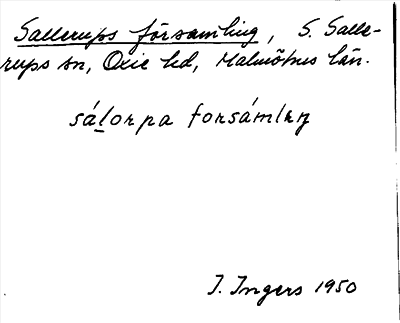 Sallerups församling, S. Salle-
rups sn, Oxie hd, Malmöhus län.
sáḻorpa forsámlıŋ
I. Ingers 1950